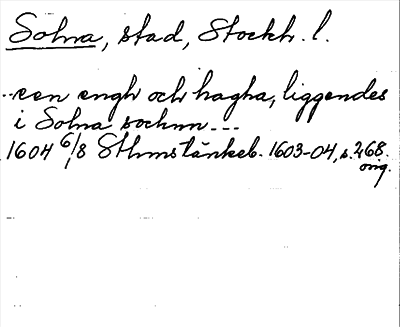 Solna, stad, Stockh. l.
..een engh och hagha, liggendes
i Solna sochnn ---
1604 6/8 Sthms tänkeb. 1603-04, s. 268.
orig.